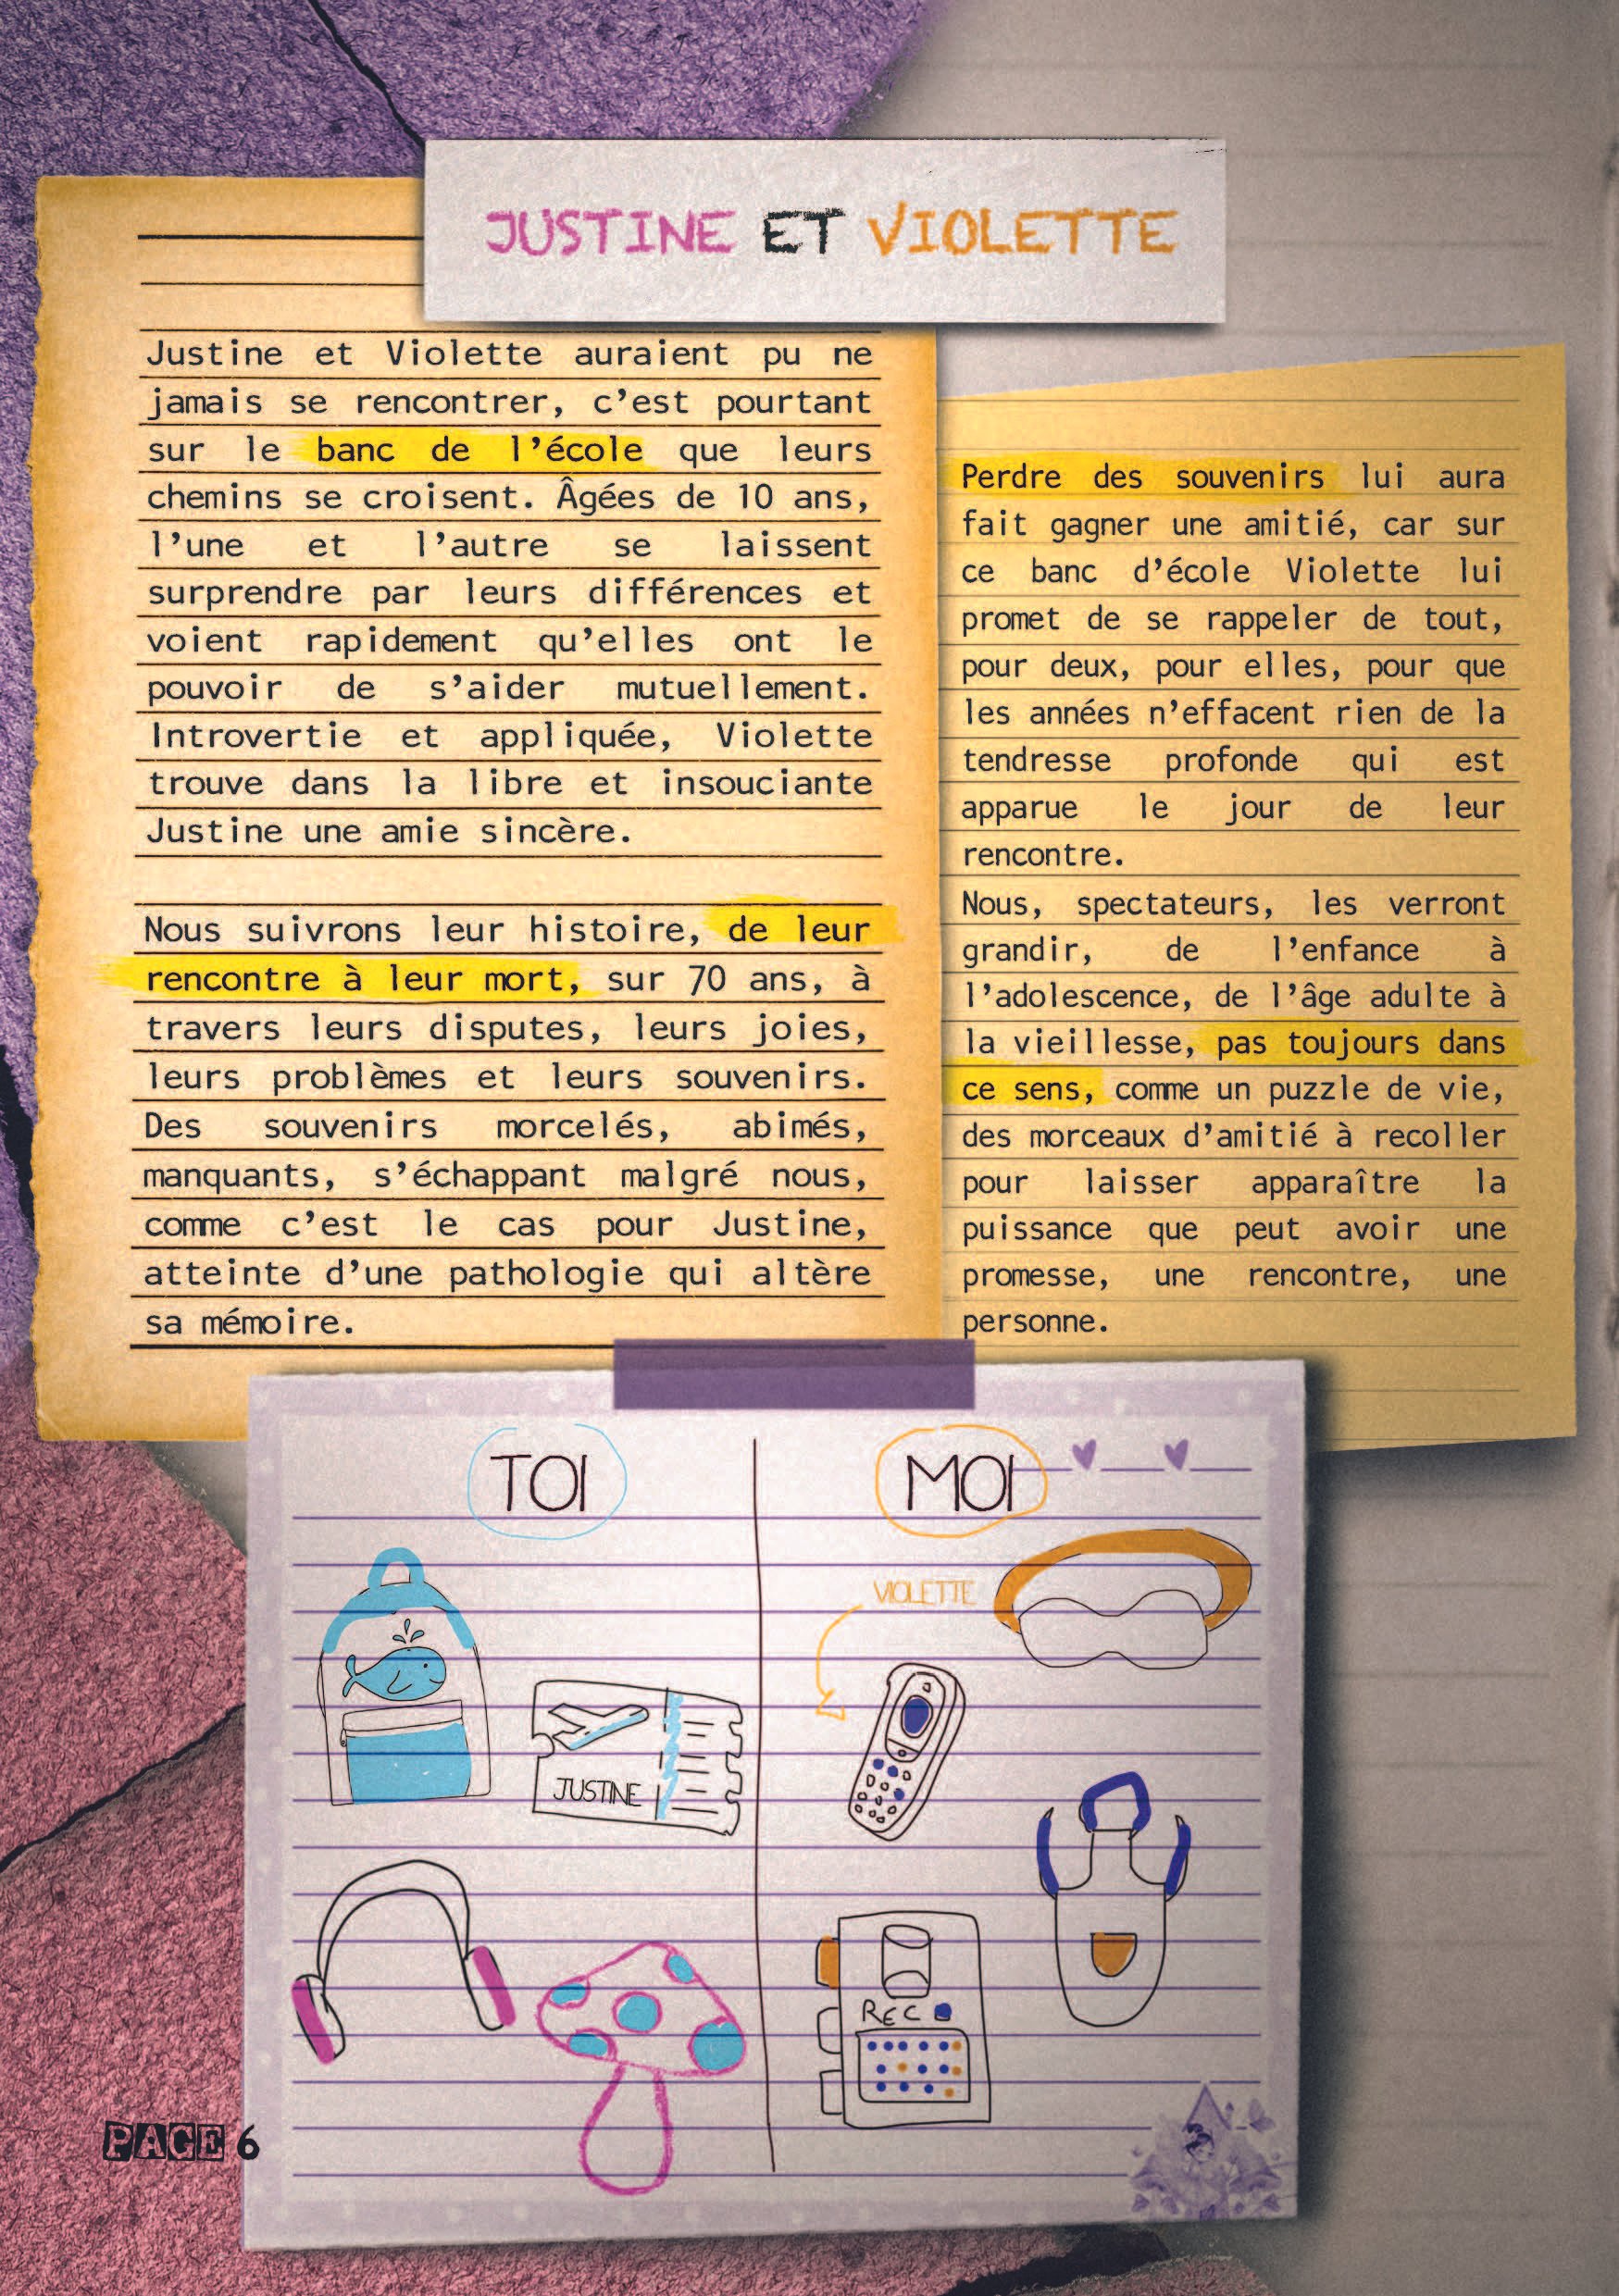 JUSTINE ET VIOLETTE
Justine et Violette auraient pu ne
jamais se rencontrer, c'est pourtant
sur le banc de l'école que leurs
chemins se croisent. Âgées de 10 ans,
l'une et l'autre se laissent
surprendre par leurs différences et
voient rapidement qu'elles ont le
pouvoir de s'aider mutuellement.
Introvertie et appliquée, Violette
trouve dans la libre et insouciante
Justine une amie sincère.
Nous suivrons leur histoire, de leur
rencontre à leur mort, sur 70 ans, à
travers leurs disputes, leurs joies,
leurs problèmes et leurs souvenirs.
Des souvenirs morcelés, abimés,
manquants, s'échappant malgré nous,
comme c'est le cas pour Justine,
atteinte d'une pathologie qui altère
sa mémoire.
Perdre des souvenirs lui aura
fait gagner une amitié, car sur
ce banc d'école Violette lui
promet de se rappeler de tout,
pour deux, pour elles, pour que
les années n'effacent rien de la
tendresse profonde qui est
apparue le jour de leur
rencontre.
Nous, spectateurs, les verront
grandir, de l'enfance à
l'adolescence, de l'âge adulte à
la vieillesse, pas toujours dans
ce sens, comme un puzzle de vie,
des morceaux d'amitié à recoller
pour laisser apparaître la
puissance que peut avoir une
promesse, une rencontre, une
personne.
TOI
MOI
VIOLETTE
JUSTINE
REC
PAGE 6